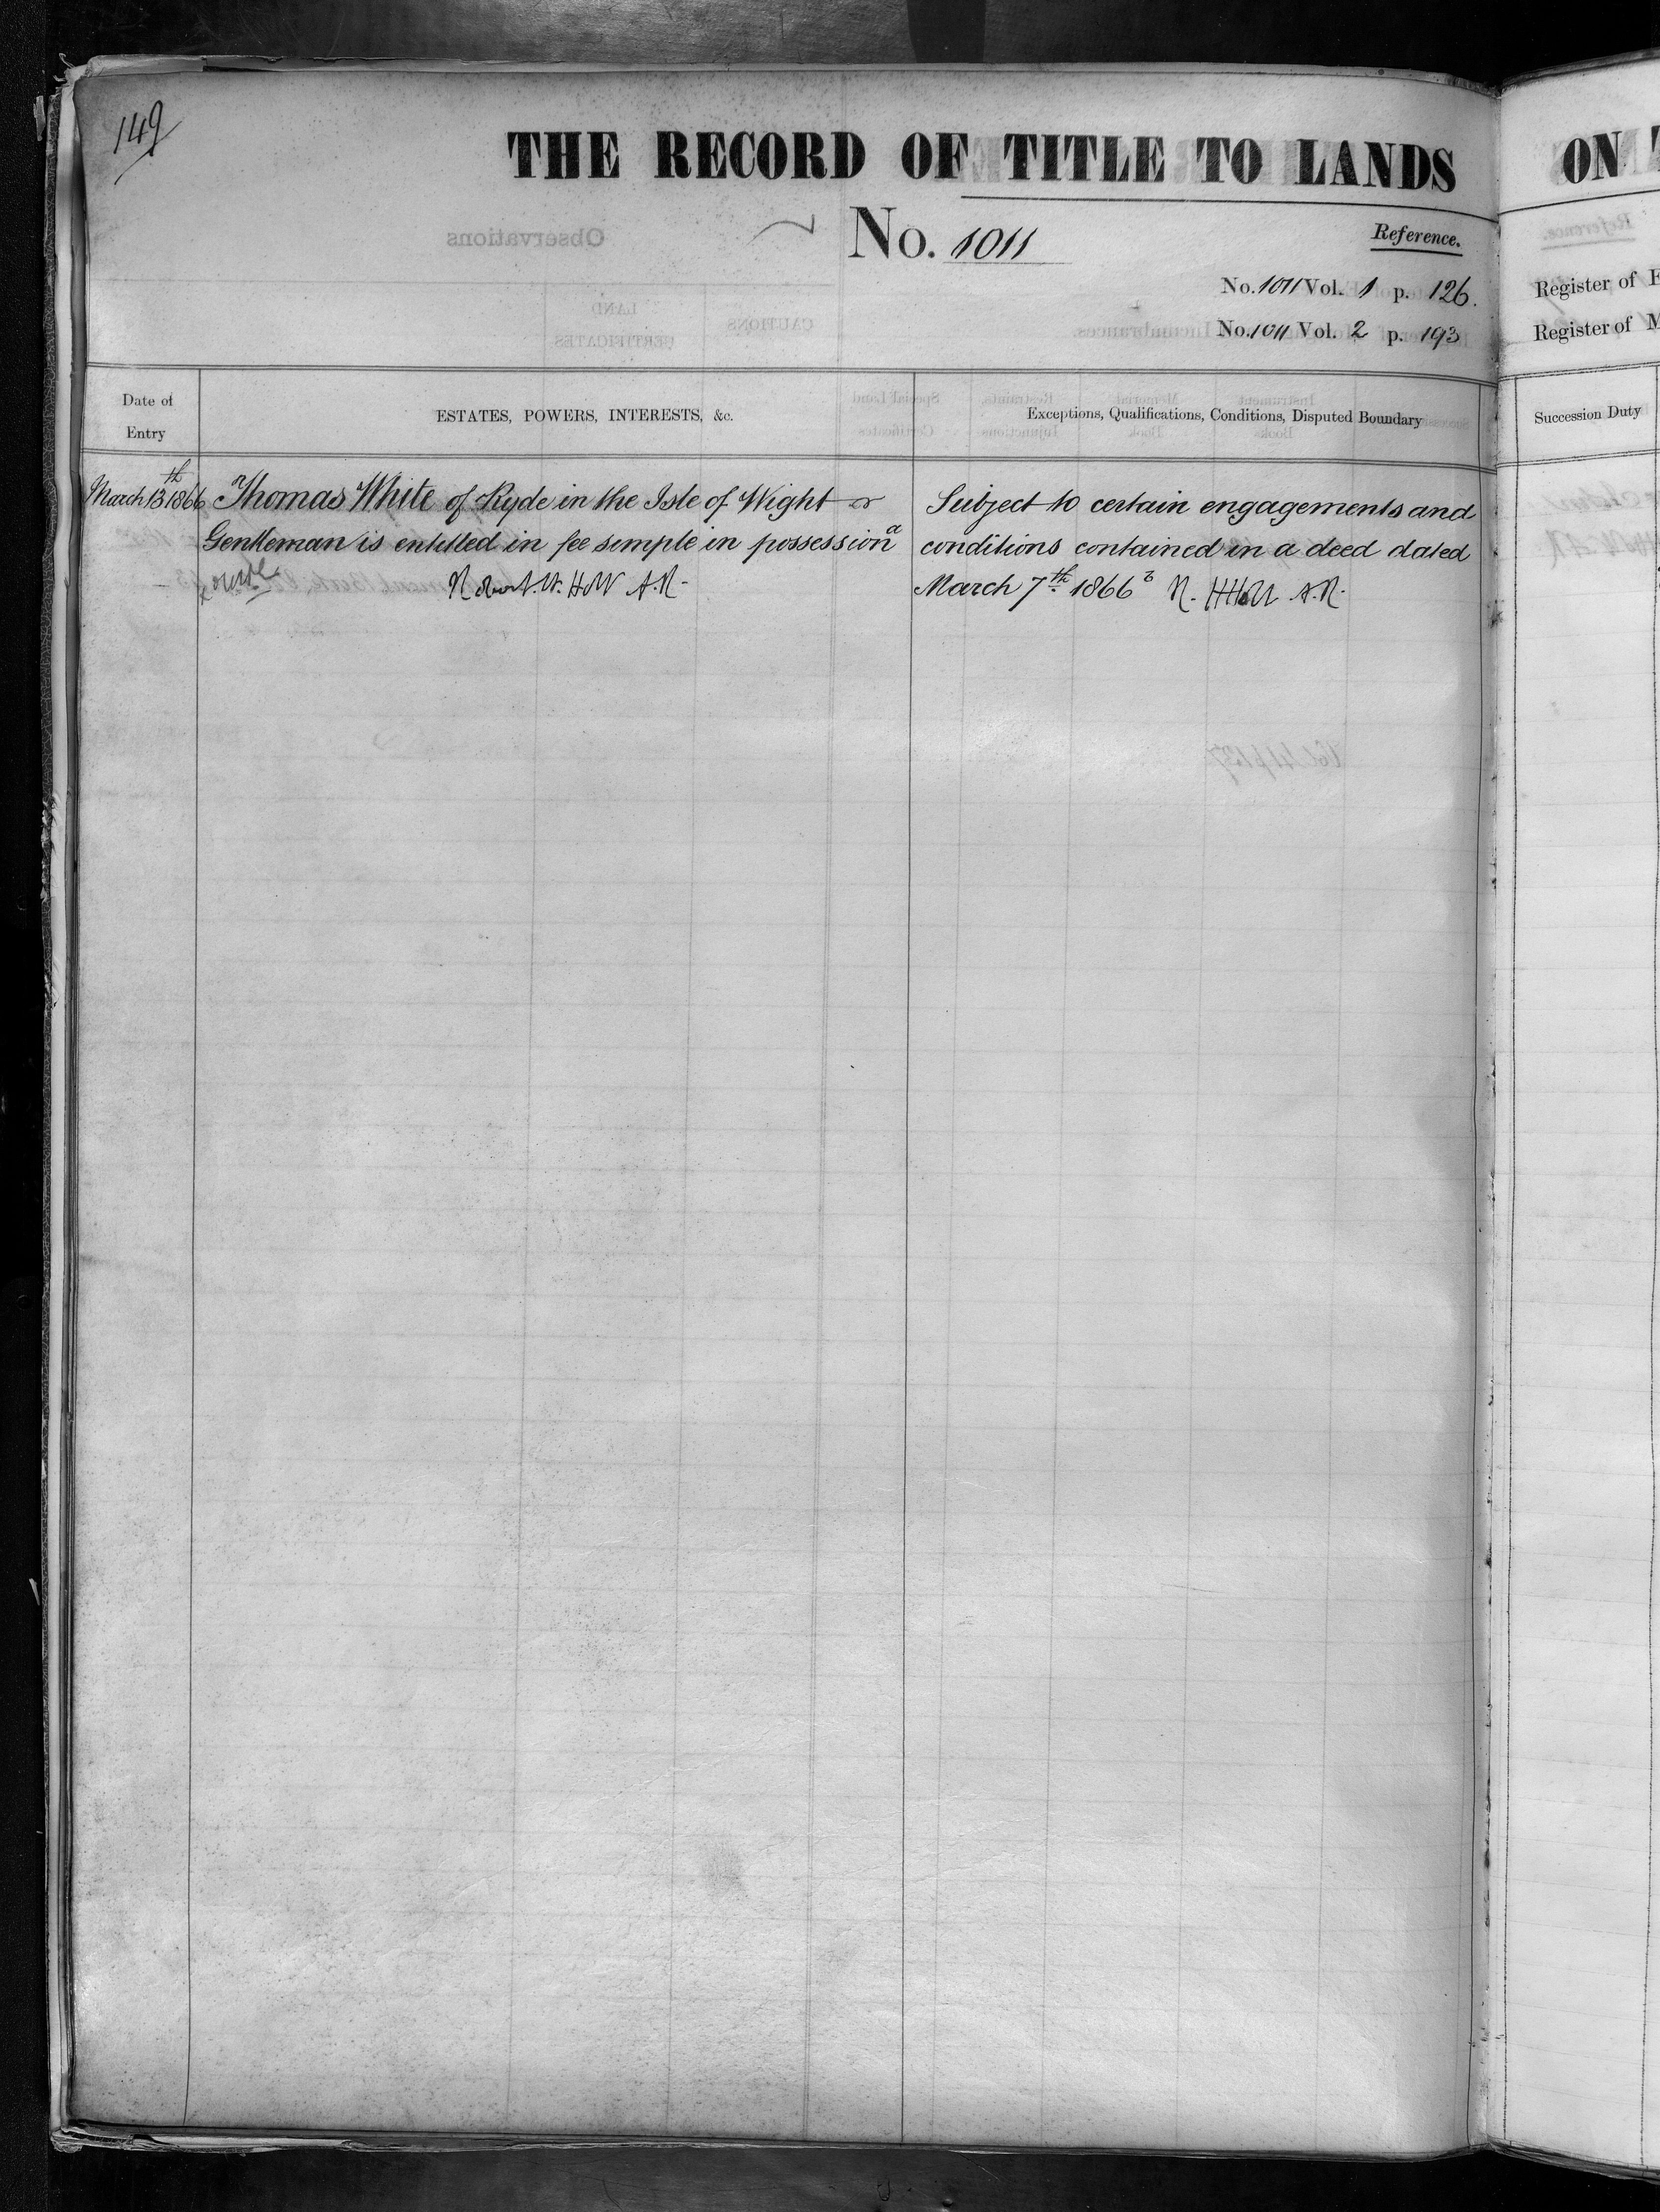 149
THE RECORD OF TITLE TO LANDS
ON
Observations
No. 1011
Reference.
No. 1011 Vol. 1 p. 126.
No. 1011 Vol. 2 p. 193
Register of
Register of
LAND
CERTIFICATES
CAUTIONS
Date of
Entry
ESTATES, POWERS, INTERESTS, &c.
Exceptions, Qualifications, Conditions, Disputed Boundary
Succession Duty
March 13th 1866
Thomas White of Ryde in the Isle of Wight
Gentleman is entitled in fee simple in possession a
A.R.
Subject to certain engagements and
conditions contained in a deed dated
March 7th 1866 b
A.R.